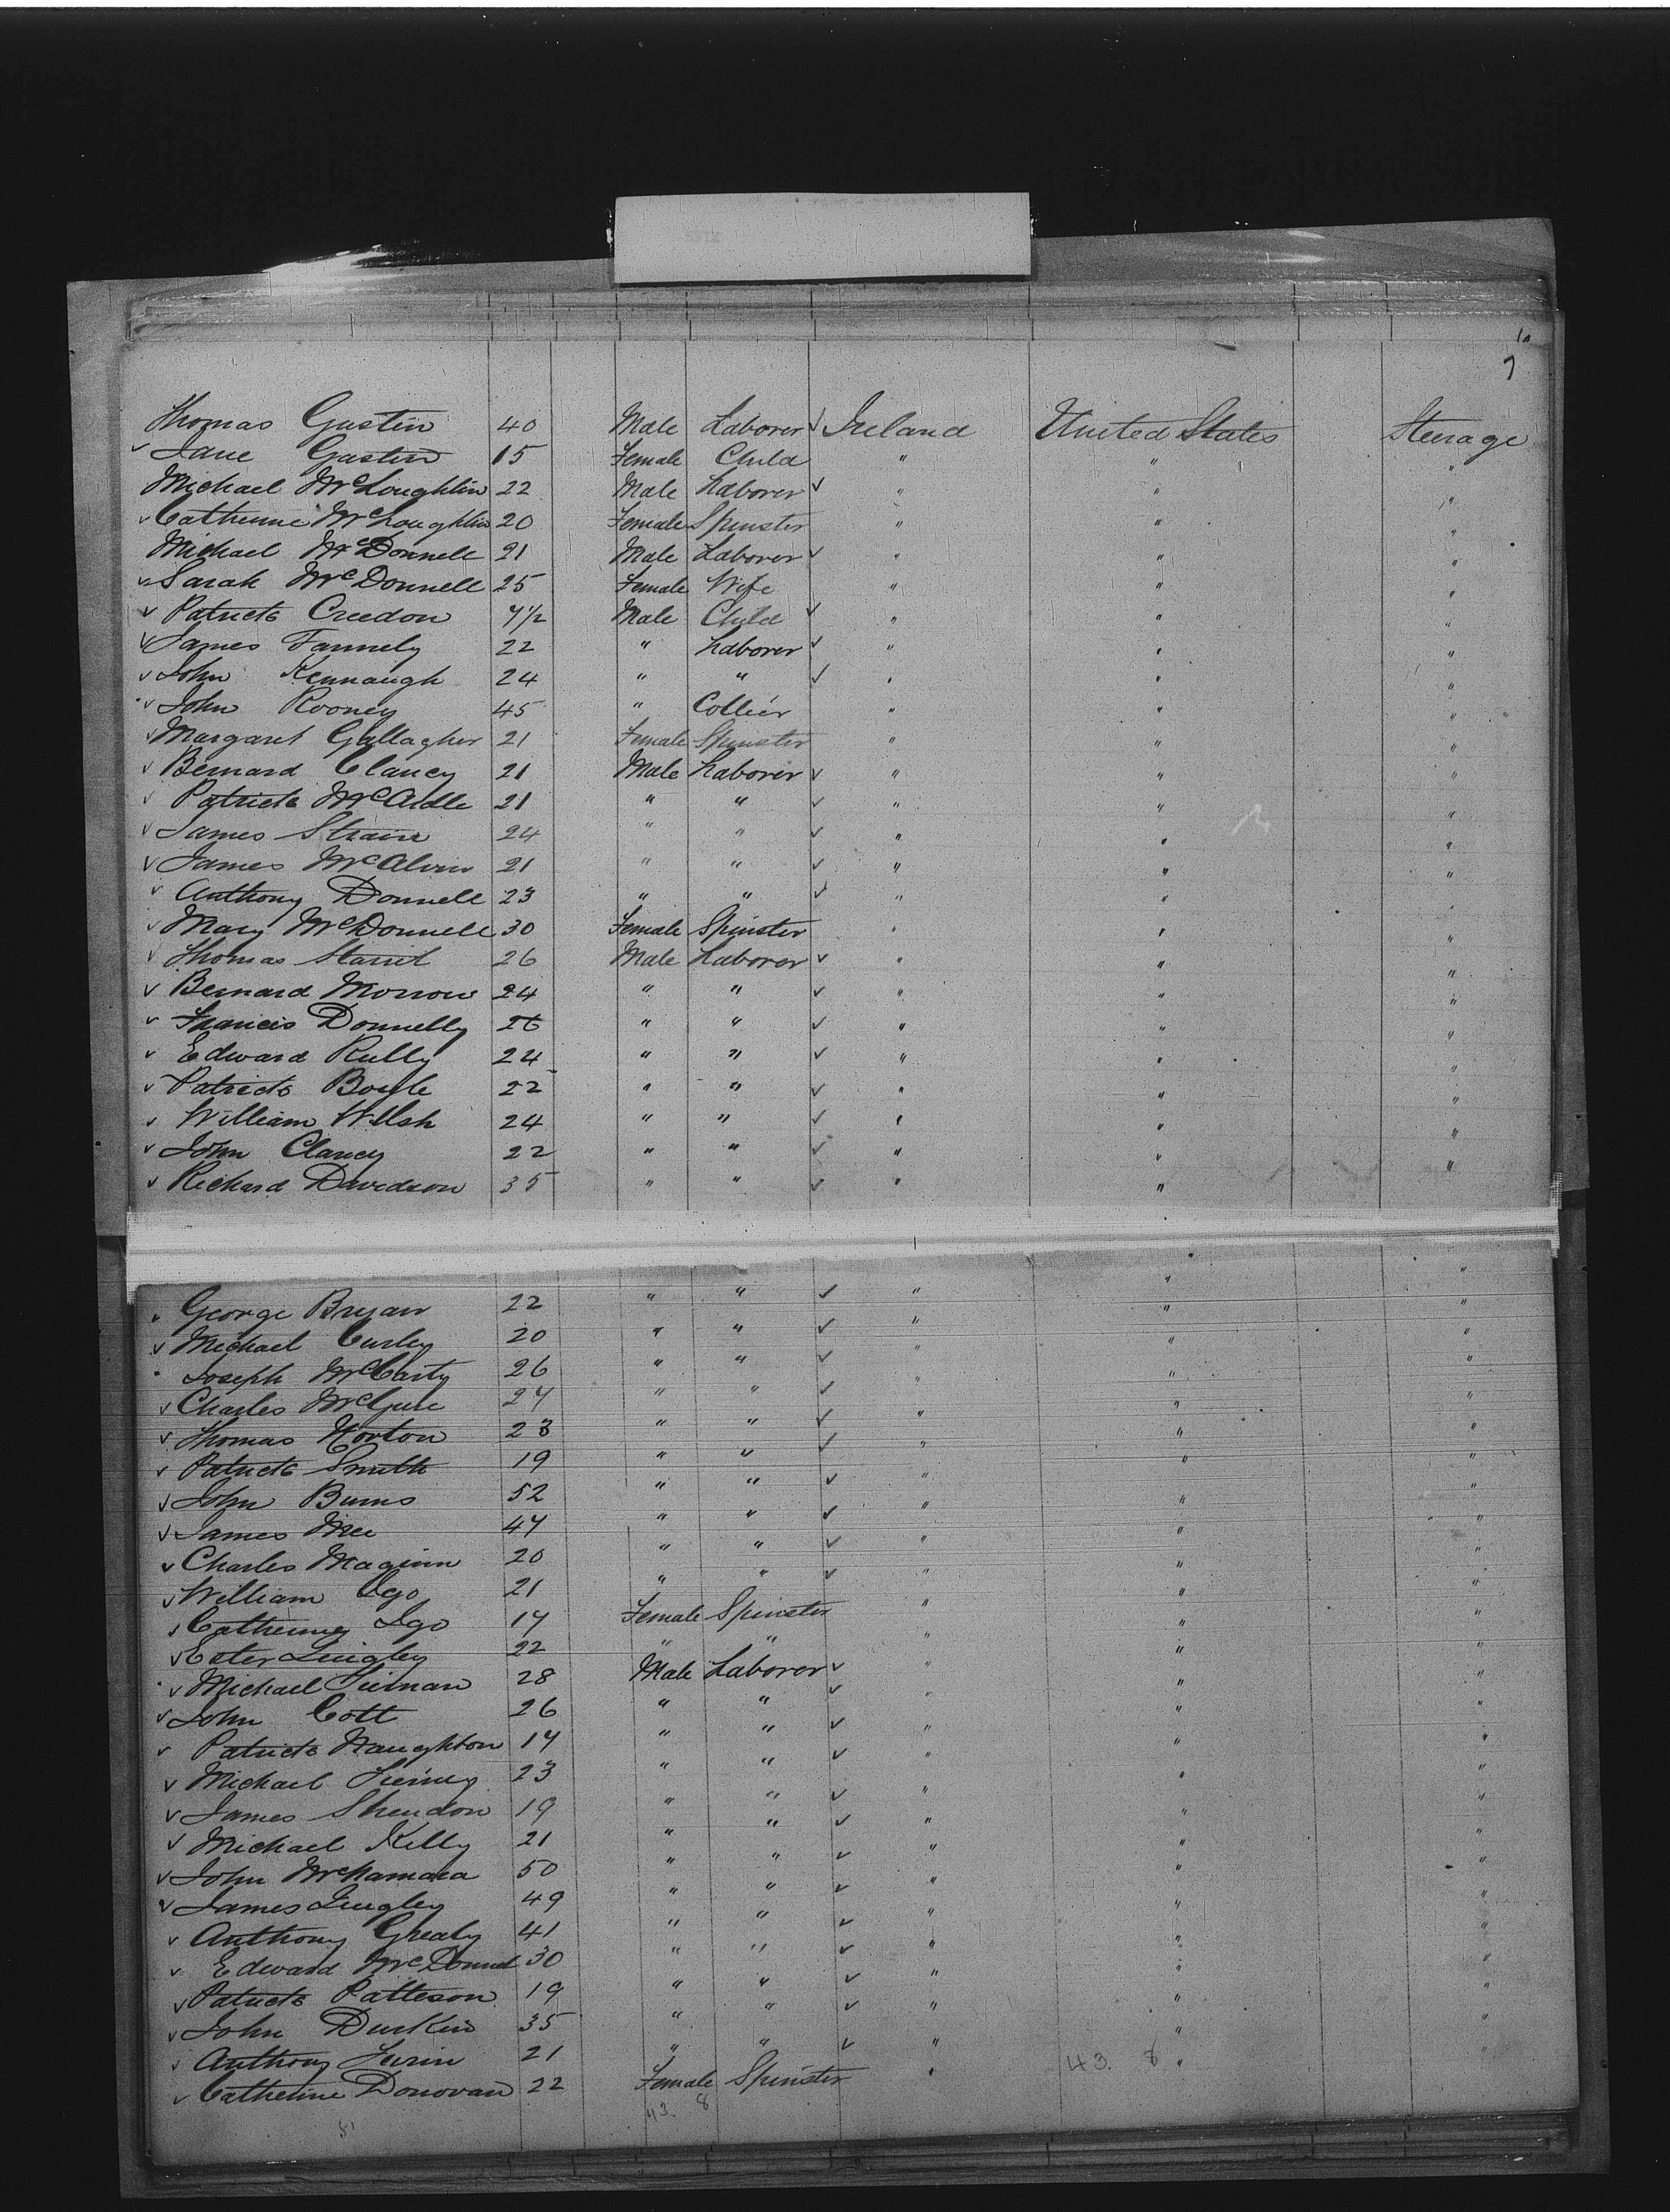 10
7
Thomas Gastin 40 Male Laborer ✓ Ireland United States Steerage
✓ Jane Gastin 15 Female Child " " "
Michael McLoughlin 22 Male Laborer ✓ " " "
✓ Catherine McLoughlin 20 Female Spinster " " "
Michael McDonnell 21 Male Laborer ✓ " " "
✓ Sarah McDonnell 25 Female Wife " " "
✓ Patrick Creedon 7½ Male Child ✓ " " "
✓ James Fannely 22 " Laborer ✓ " " "
✓ John Kennaugh 24 " " ✓ " " "
✓ John Rooney 45 " Collier " " "
✓ Margaret Gallagher 21 Female Spinster " " "
✓ Bernard Clancy 21 Male Laborer ✓ " " "
✓ Patrick McArdle 21 " " ✓ " " "
✓ James Strain 24 " " ✓ " " "
✓ James McAlvin 21 " " ✓ " " "
✓ Anthony Donnell 23 " " ✓ " " "
✓ Mary McDonnell 30 Female Spinster " " "
✓ Thomas 26 Male Laborer ✓ " " "
✓ Bernard Morrow 24 " " ✓ " " "
✓ Francis Donnelly 26 " " ✓ " " "
✓ Edward Rully 24 " " ✓ " " "
✓ Patrick Boyle 22 " " ✓ " " "
✓ William Welsh 24 " " ✓ " " "
✓ John Clancy 22 " " ✓ " " "
✓ Richard Davidson 35 " " ✓ " " "
George Bryan 22 " " ✓ " " "
✓ Michael Curley 20 " " ✓ " " "
Joseph McCarty 26 " " ✓ " " "
✓ Charles McGuire 24 " " ✓ " " "
✓ Thomas Horton 23 " " ✓ " " "
✓ Patrick Smith 19 " " ✓ " " "
✓ John Burns 52 " " ✓ " " "
✓ James Mee 47 " " ✓ " " "
✓ Charles Maginn 20 " " ✓ " " "
✓ William Igo 21 " " ✓ " " "
✓ Catherine Igo 17 Female Spinster " " "
✓ Ester Lingley 22 " " " " "
✓ Michael Tiernan 28 Male Laborer ✓ " " "
✓ John Cott 26 " " ✓ " " "
✓ Patrick Naughton 17 " " ✓ " " "
✓ Michael 23 " " ✓ " " "
✓ James Sheridon 19 " " ✓ " " "
✓ Michael Kelly 21 " " ✓ " " "
✓ John McNamara 50 " " ✓ " " "
✓ James Lingley 49 " " ✓ " " "
✓ Anthony Grealy 41 " " ✓ " " "
✓ Edward McDonnel 30 " " ✓ " " "
✓ Patrick Patteson 19 " " ✓ " " "
✓ John Durkin 35 " " ✓ " " "
✓ Anthony 21 " " ✓ " " "
✓ Catherine Donovan 22 Female Spinster " 43. 8 "
43. 8
51